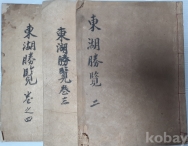 東湖勝覽 二
東湖勝覽卷三
東湖勝覽 卷之四
kobay